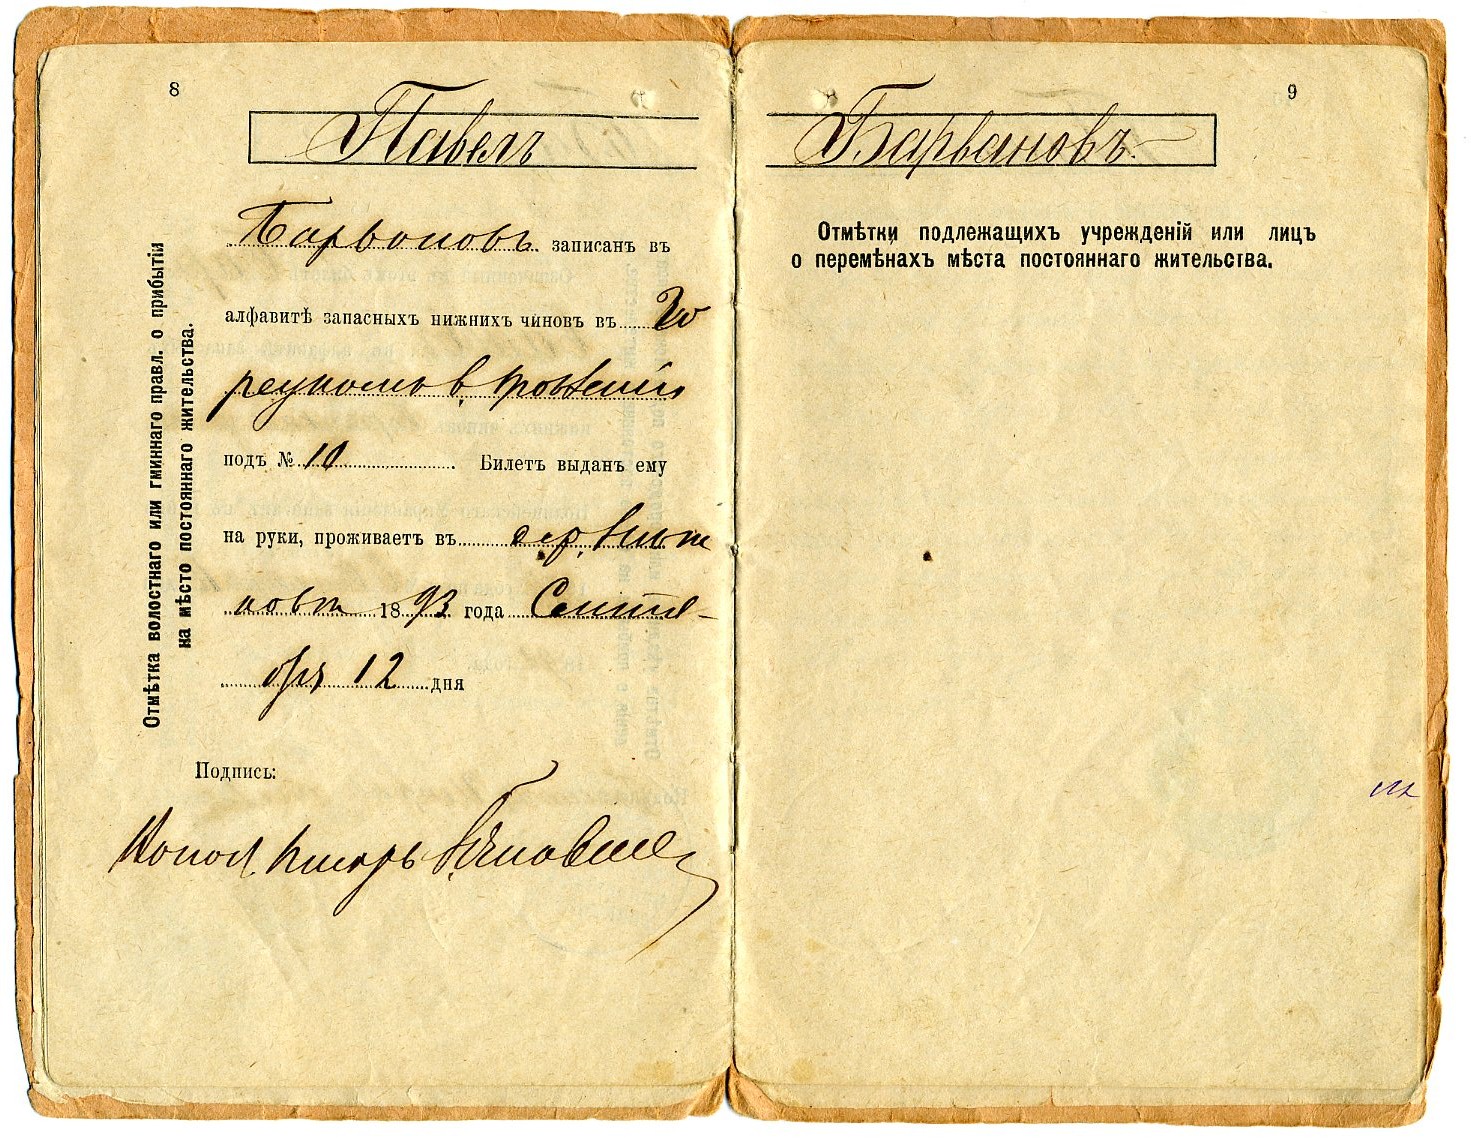 8
Павелъ
Отмѣтка волостнаго или гминнаго правл. о прибытіи
на мѣсто постояннаго жительства.
Барвановъ записанъ въ
алфавитѣ запасныхъ нижнихъ чиновъ въ
подъ № 10 Билетъ выданъ ему
на руки, проживаетъ въ
1893 года Сентя-
бря 12 дня
Подпись:
9
Барвановъ
Отмѣтки подлежащихъ учрежденій или лицъ
о перемѣнахъ мѣста постояннаго жительства.